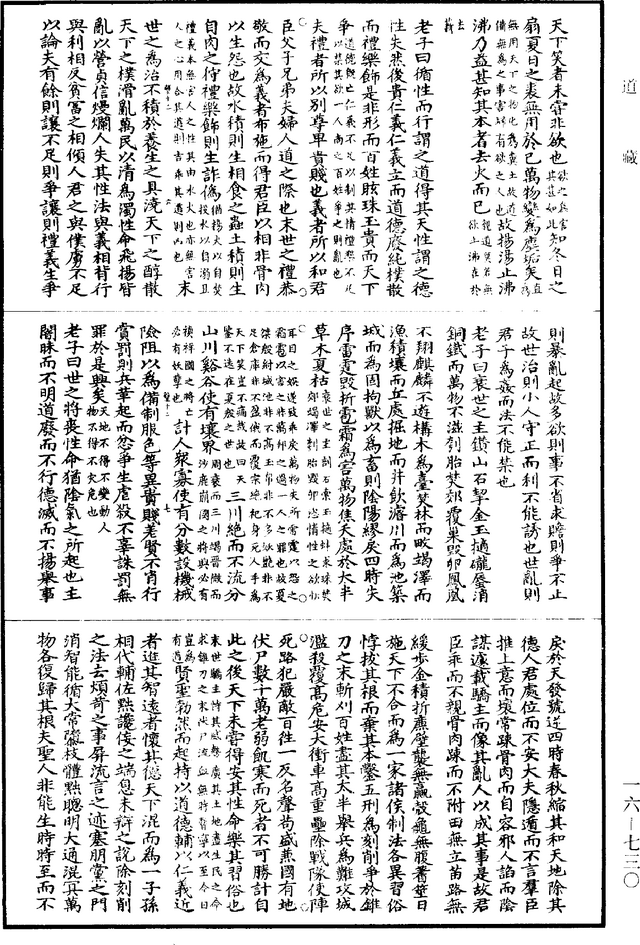 道藏
天下笑者未嘗非欲也欲之為害其甚如此知冬日之
扇夏日之裘無用於己萬物變為塵垢矣
故揚湯止沸
沸乃益甚知其本者去火而已
老子曰循性而行謂之道得其天性謂之德
性失然後貴仁義仁義立而道德廢純樸散
而禮樂飾是非形而百姓眩珠玉貴而天下
爭道德既亡仁義不足以制其情禮恕不足以禁其欲一人尚之百姓爭之則亂也
夫禮者所以別尊卑貴賤也義者所以和君
臣父子兄弟夫婦人道之際也末世之禮恭
敬而交為義者布施而得君臣以相非骨肉
以生怨也故水積則生相食之蟲土積則生
自肉之狩禮樂飾則生詐偽火以自焚投水以自溺且
禮義本無害人之性其由水火也亦無害人之心用合其道則吉乖其道則凶也末
世之為治不積於養生之具澆天下之醇散
天下之樸滑亂萬民以清為濁性命飛揚皆
亂以營貞信熳爛人失其性法與義相背行
與利相反貧富之相傾人君之與僕虜不足
以論夫有餘則讓不足則爭讓則禮義生爭
則暴亂起故多欲則事不省求贍則爭不止
故世治則小人守正而利不能誘也世亂則
君子為姦而法不能禁也
老子曰衰世之主鑽山石挈金玉擿礲蜃消
銅鐵而萬物不滋刳胎焚郊覆巢毀卵鳳凰
不翔麒麟不遊構木為臺焚林而畋竭澤而
漁積壤而丘處掘地而井飲濬川而為池築
城而為固拘獸以為畜則陰陽繆戾四時失
序雷霆毀折雹霜為害萬物焦夭處於太半
草木夏枯
三川絕而不流分
山川谿谷使有壤界周衰而三川竭晉微而沙鹿崩國之將興必有
禎祥國之將亡必有妖孽也計人眾寡使有分數設機械
險阻以為備制服色等異貴賤差賢不肖行
賞罰則兵革起而忿爭生虐殺不辜誅罰無
罪於是興矣天地不得不變動人物不得不災危也
老子曰世之將喪性命猶陰氣之所起也主
闇昧而不明道廢而不行德滅而不揚舉事
戾於天發號逆四時春秋縮其和天地除其
德人君處位而不安大夫隱遁而不言群臣
推上意而壞常疎骨肉而自容邪人諂而陰
謀遽載驕主而像其亂人以成其事是故君
臣乖而不親骨肉疎而不附田無立苗路無
緩步金積折廉壁襲無蠃殼龜無腹蓍筮日
施天下不合而為一家諸侯制法各異習俗
悖拔其根而棄其本鑿五刑為刻削爭於錐
刀之末斬刈百姓盡其太半舉兵為難攻城
濫殺覆高危安大衝車高重壘除戰隊使陣
死路犯嚴敵百往一反名聲苟盛兼國有地
伏尸數十萬老弱飢寒而死者不可勝計自
此之後天下未嘗得安其性命樂其習俗也
賢聖勃然而起持以道德輔以仁義近
者進其智遠者懷其德天下混而為一子孫
相代輔佐黜讒佞之端息末辯之說除刻削
之法去煩苛之事屏流言之迹塞朋黨之門
消智能循大常隳枝體黜聰明大通混冥萬
物各復歸其根夫聖人非能生時時至而不
一六—七三〇